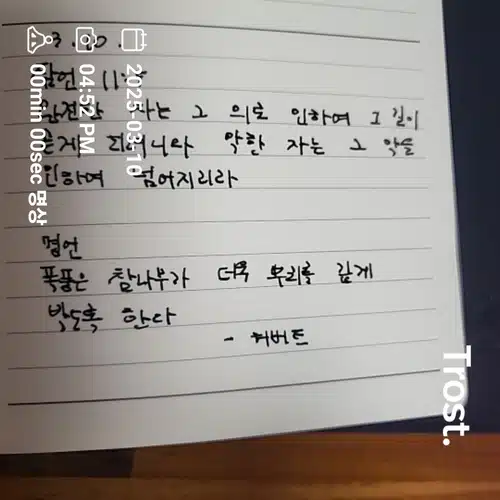 3. 10.
잠언 11:5
완전한 자는 그 의로 인하여 그 길이
곧게 되려니와 악한 자는 그 악을
인하여 넘어지리라
명언
폭풍은 참나무가 더욱 뿌리를 깊게
박도록 한다
- 허버트
2025-03-10
04:52 PM
00min 00sec 명상
Trost.